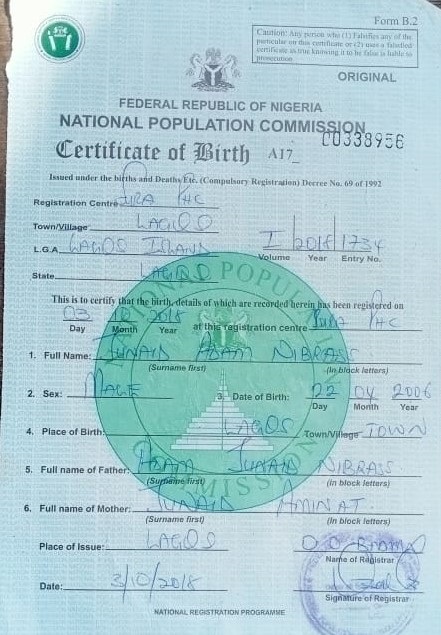 Form B.2
Caution: Any person who (1) Falsifies any of the
particular on this certificate or (2) uses a falsified
certificate as true knowing it to be false is liable to
prosecution
ORIGINAL
FEDERAL REPUBLIC OF NIGERIA
NATIONAL POPULATION COMMISSION
Certificate of Birth A17 C0338956
Issued under the births and Deaths, Etc. (Compulsory Registration) Decree No. 69 of 1992
Registration Centre PHC
Town/Village LAGOS
L.G.A. LAGOS ISLAND I 2018 1734
Volume Year Entry No.
State LAGOS
This is to certify that the birth, details of which are recorded herein has been registered on
03 10 2018 at this registration centre PHC
Day Month Year
1. Full Name: JUNAID ADAM NIBRASS
(Surname first) (In block letters)
2. Sex: MALE 3. Date of Birth: 22 04 2006
Day Month Year
4. Place of Birth: LAGOS Town/Village TOWN
5. Full name of Father: ADAM JUNAID NIBRASS
(Surname first) (In block letters)
6. Full name of Mother: JUNAID AMINAT
(Surname first) (In block letters)
Place of Issue: LAGOS O.O.
Name of Registrar
Date: 3/10/2018
Signature of Registrar
NATIONAL REGISTRATION PROGRAMME